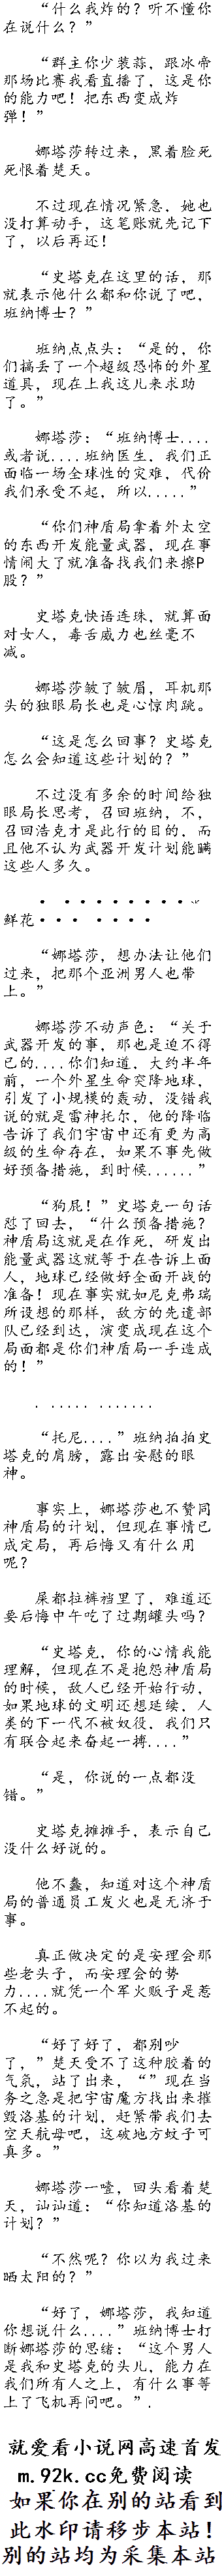 “什么我炸的？听不懂你
在说什么？”
“群主你少装蒜，跟冰帝
那场比赛我看直播了，这是你
的能力吧！把东西变成炸
弹！”
娜塔莎转过来，黑着脸死
死恨着楚天。
不过现在情况紧急，她也
没打算动手，这笔账就先记下
了，以后再还！
“史塔克在这里的话，那
就表示他什么都和你说了吧，
班纳博士？”
班纳点点头：“是的，你
们搞丢了一个超级恐怖的外星
道具，现在上我这儿来求助
了。”
娜塔莎：“班纳博士....
或者说....班纳医生，我们正
面临一场全球性的灾难，代价
我们承受不起，所以.....”
“你们神盾局拿着外太空
的东西开发能量武器，现在事
情闹大了就准备找我们来擦P
股？”
史塔克快语连珠，就算面
对女人，毒舌威力也丝毫不
减。
娜塔莎皱了皱眉，耳机那
头的独眼局长也是心惊肉跳。
“这是怎么回事？史塔克
怎么会知道这些计划的？”
不过没有多余的时间给独
眼局长思考，召回班纳，不，
召回浩克才是此行的目的，而
且他不认为武器开发计划能瞒
这些人多久。
鲜花
“娜塔莎，想办法让他们
过来，把那个亚洲男人也带
上。”
娜塔莎不动声色：“关于
武器开发的事，那也是迫不得
已的....你们知道，大约半年
前，一个外星生命突降地球，
引发了小规模的轰动，没错我
说的就是雷神托尔，他的降临
告诉了我们宇宙中还有更为高
级的生命存在，如果不事先做
好预备措施，到时候......”
“狗屁！”史塔克一句话
怼了回去，“什么预备措施？
神盾局这就是在作死，研发出
能量武器这就等于在告诉上面
人，地球已经做好全面开战的
准备！现在事实就如尼克弗瑞
所设想的那样，敌方的先遣部
队已经到达，演变成现在这个
局面都是你们神盾局一手造成
的！”
. ..... .......
“托尼....”班纳拍拍史
塔克的肩膀，露出安慰的眼
神。
事实上，娜塔莎也不赞同
神盾局的计划，但现在事情已
成定局，再后悔又有什么用
呢？
屎都拉裤裆里了，难道还
要后悔中午吃了过期罐头吗？
“史塔克，你的心情我能
理解，但现在不是抱怨神盾局
的时候，敌人已经开始行动，
如果地球的文明还想延续，人
类的下一代不被奴役，我们只
有联合起来奋起一搏....”
“是，你说的一点都没
错。”
史塔克摊摊手，表示自己
没什么好说的。
他不蠢，知道对这个神盾
局的普通员工发火也是无济于
事。
真正做决定的是安理会那
些老头子，而安理会的势
力....就凭一个军火贩子是惹
不起的。
“好了好了，都别吵
了，”楚天受不了这种胶着的
气氛，站了出来，“”现在当
务之急是把宇宙魔方找出来摧
毁洛基的计划，赶紧带我们去
空天航母吧，这破地方蚊子可
真多。”
娜塔莎一噎，回头看着楚
天，讪讪道：“你知道洛基的
计划？”
“不然呢？你以为我过来
晒太阳的？”
“好了，娜塔莎，我知道
你想说什么....”班纳博士打
断娜塔莎的思绪：“这个男人
是我和史塔克的头儿，能力在
我们所有人之上，有什么事等
上了飞机再问吧。”.
就爱看小说网高速首发
m.92k.cc免费阅读
如果你在别的站看到
此水印请移步本站！
别的站均为采集本站